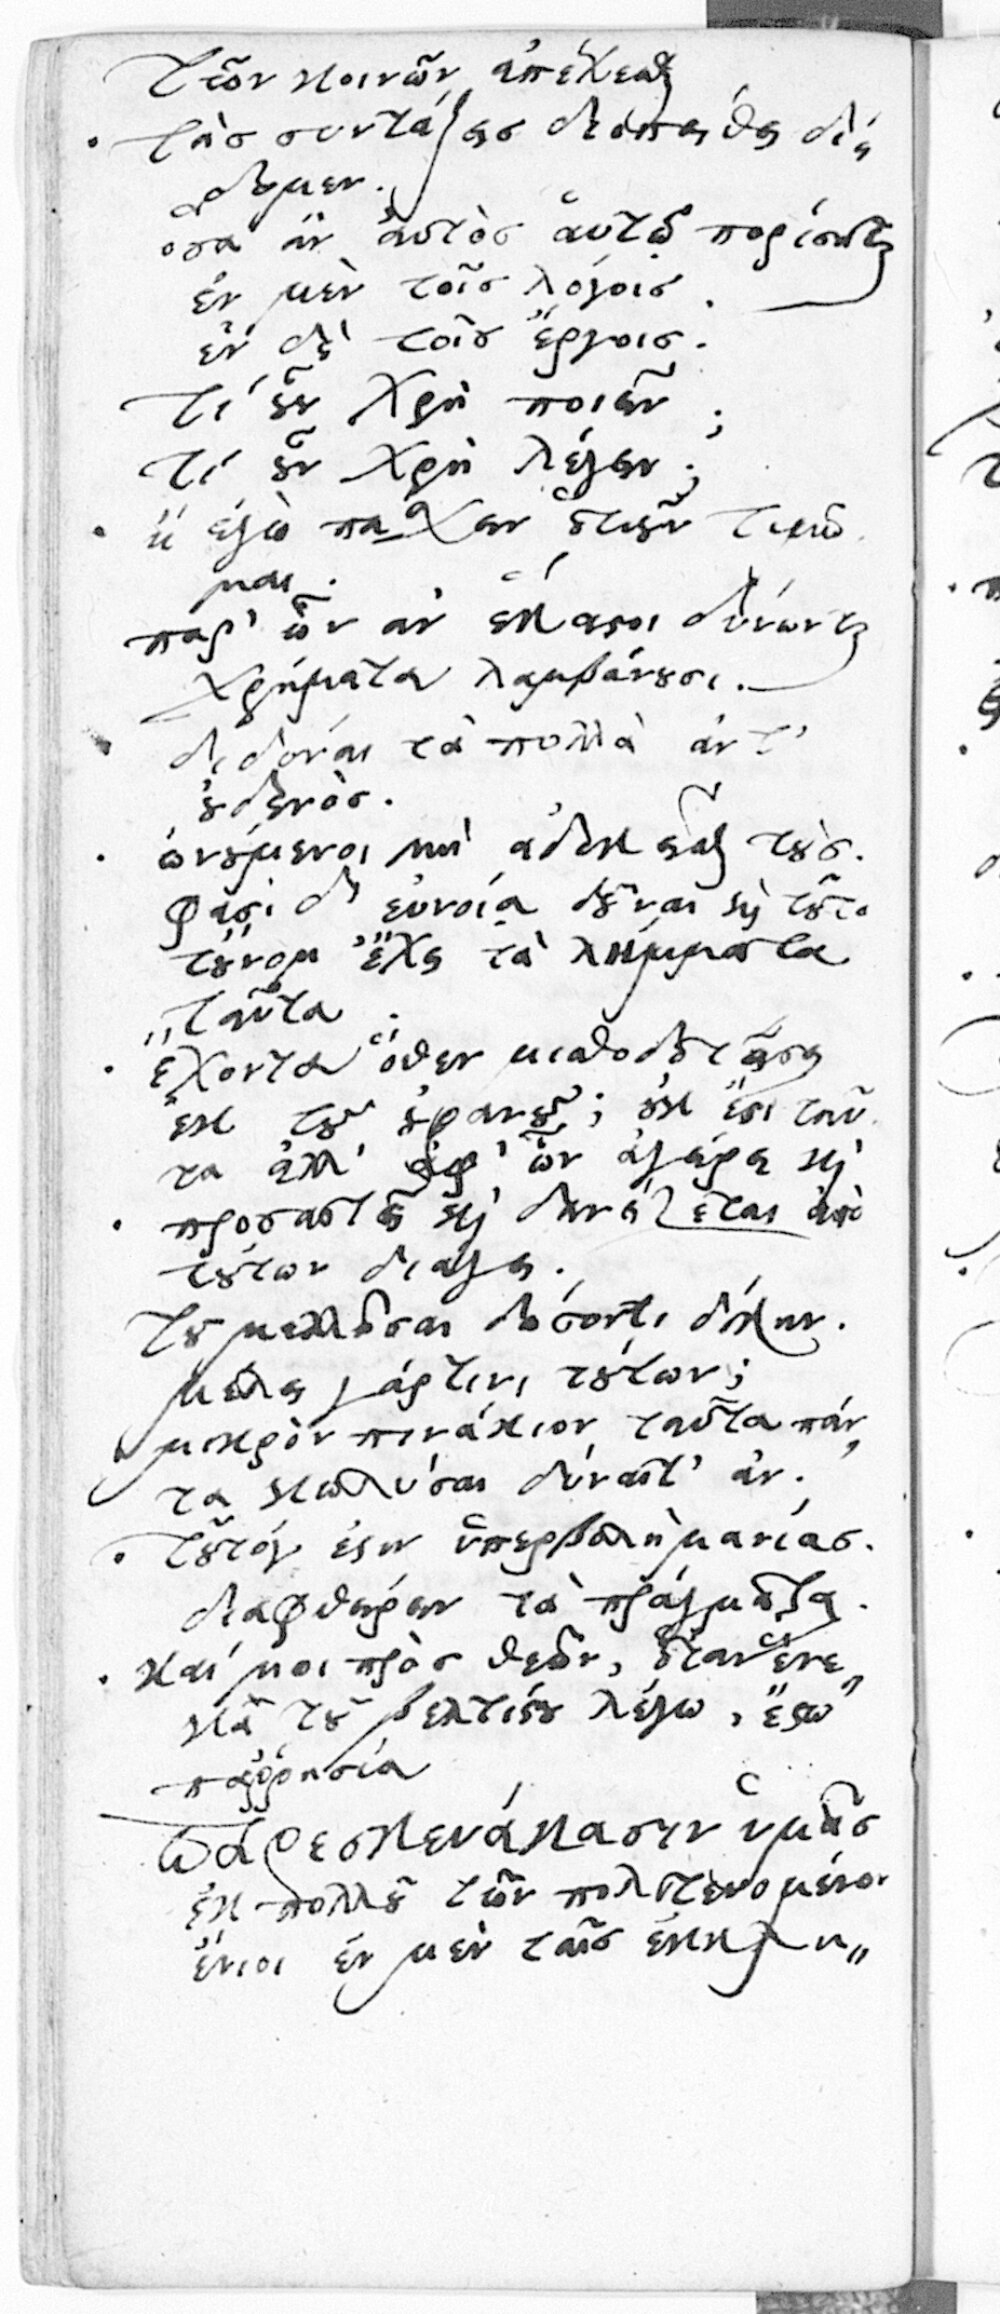 τῶν κοινῶν ἀπέχεσθαι
τὰσ συντάξεισ διοπείθει δί„
δομεν.
ὅσα ἂν ἀυτὸσ αὑτῷ πορίσηται
ἐν μὲν τοῖσ λόγοισ.
ἐν δὲ τοῖσ ἔργοισ.
τί οὖν χρὴ ποιεῖν;
τί οὖν χρὴ λέγειν;
ἢ ἐγὼ πάσχειν ὁτιοῦν τιμῶ
μαι.
παρ' ὧν ἂν ἕκαστοι δύνωνται
χρήματα λαμβάνουσι.
διδόναι τὰ πολλὰ ἀντ'
ουδενὸσ.
ὠνούμενοι μὴ ἀδικεῖσθαι τοὺσ.
φασὶ δ' ἐυνοία δοῦναι καὶ τοῦτο
τοὔνομ' ἔχει τὰ λήμματα
ταῦτα.
ἔχοντα ὅθεν μισθοδοτήσει
ἐκ τοῦ ουρανοῦ; ουκ ἔστι ταῦ
τα ἀλλ' ἀφ' ὧν ἀγείρει καὶ
προσαιτεῖ καὶ δανείζεται ἀπὸ
τούτων διάγει.
τῷ μελλῆσαι δώσοντι δίκην.
μέλει γάρ τινι τούτων;
μικρὸν πινάκιον ταῦτα πάν„
τα κωλύσαι δύναιτ' ἄν.
τοῦτό γ' ἐστὶν ὑπερβολὴ μανίασ.
διαφθείρειν τὰ πράγματα.
καί μοι πρὸσ θεῶν, ὅταν ἕνε„
κα τοῦ βελτίστου λέγω, ἔστω
παῤῥησία
Παρεσκευάκασιν ὑμᾶσ
ἐκ πολλοῦ τῶν πολιτευομένων
ἔνιοι ἐν μὲν ταῖσ ἐκκλη„